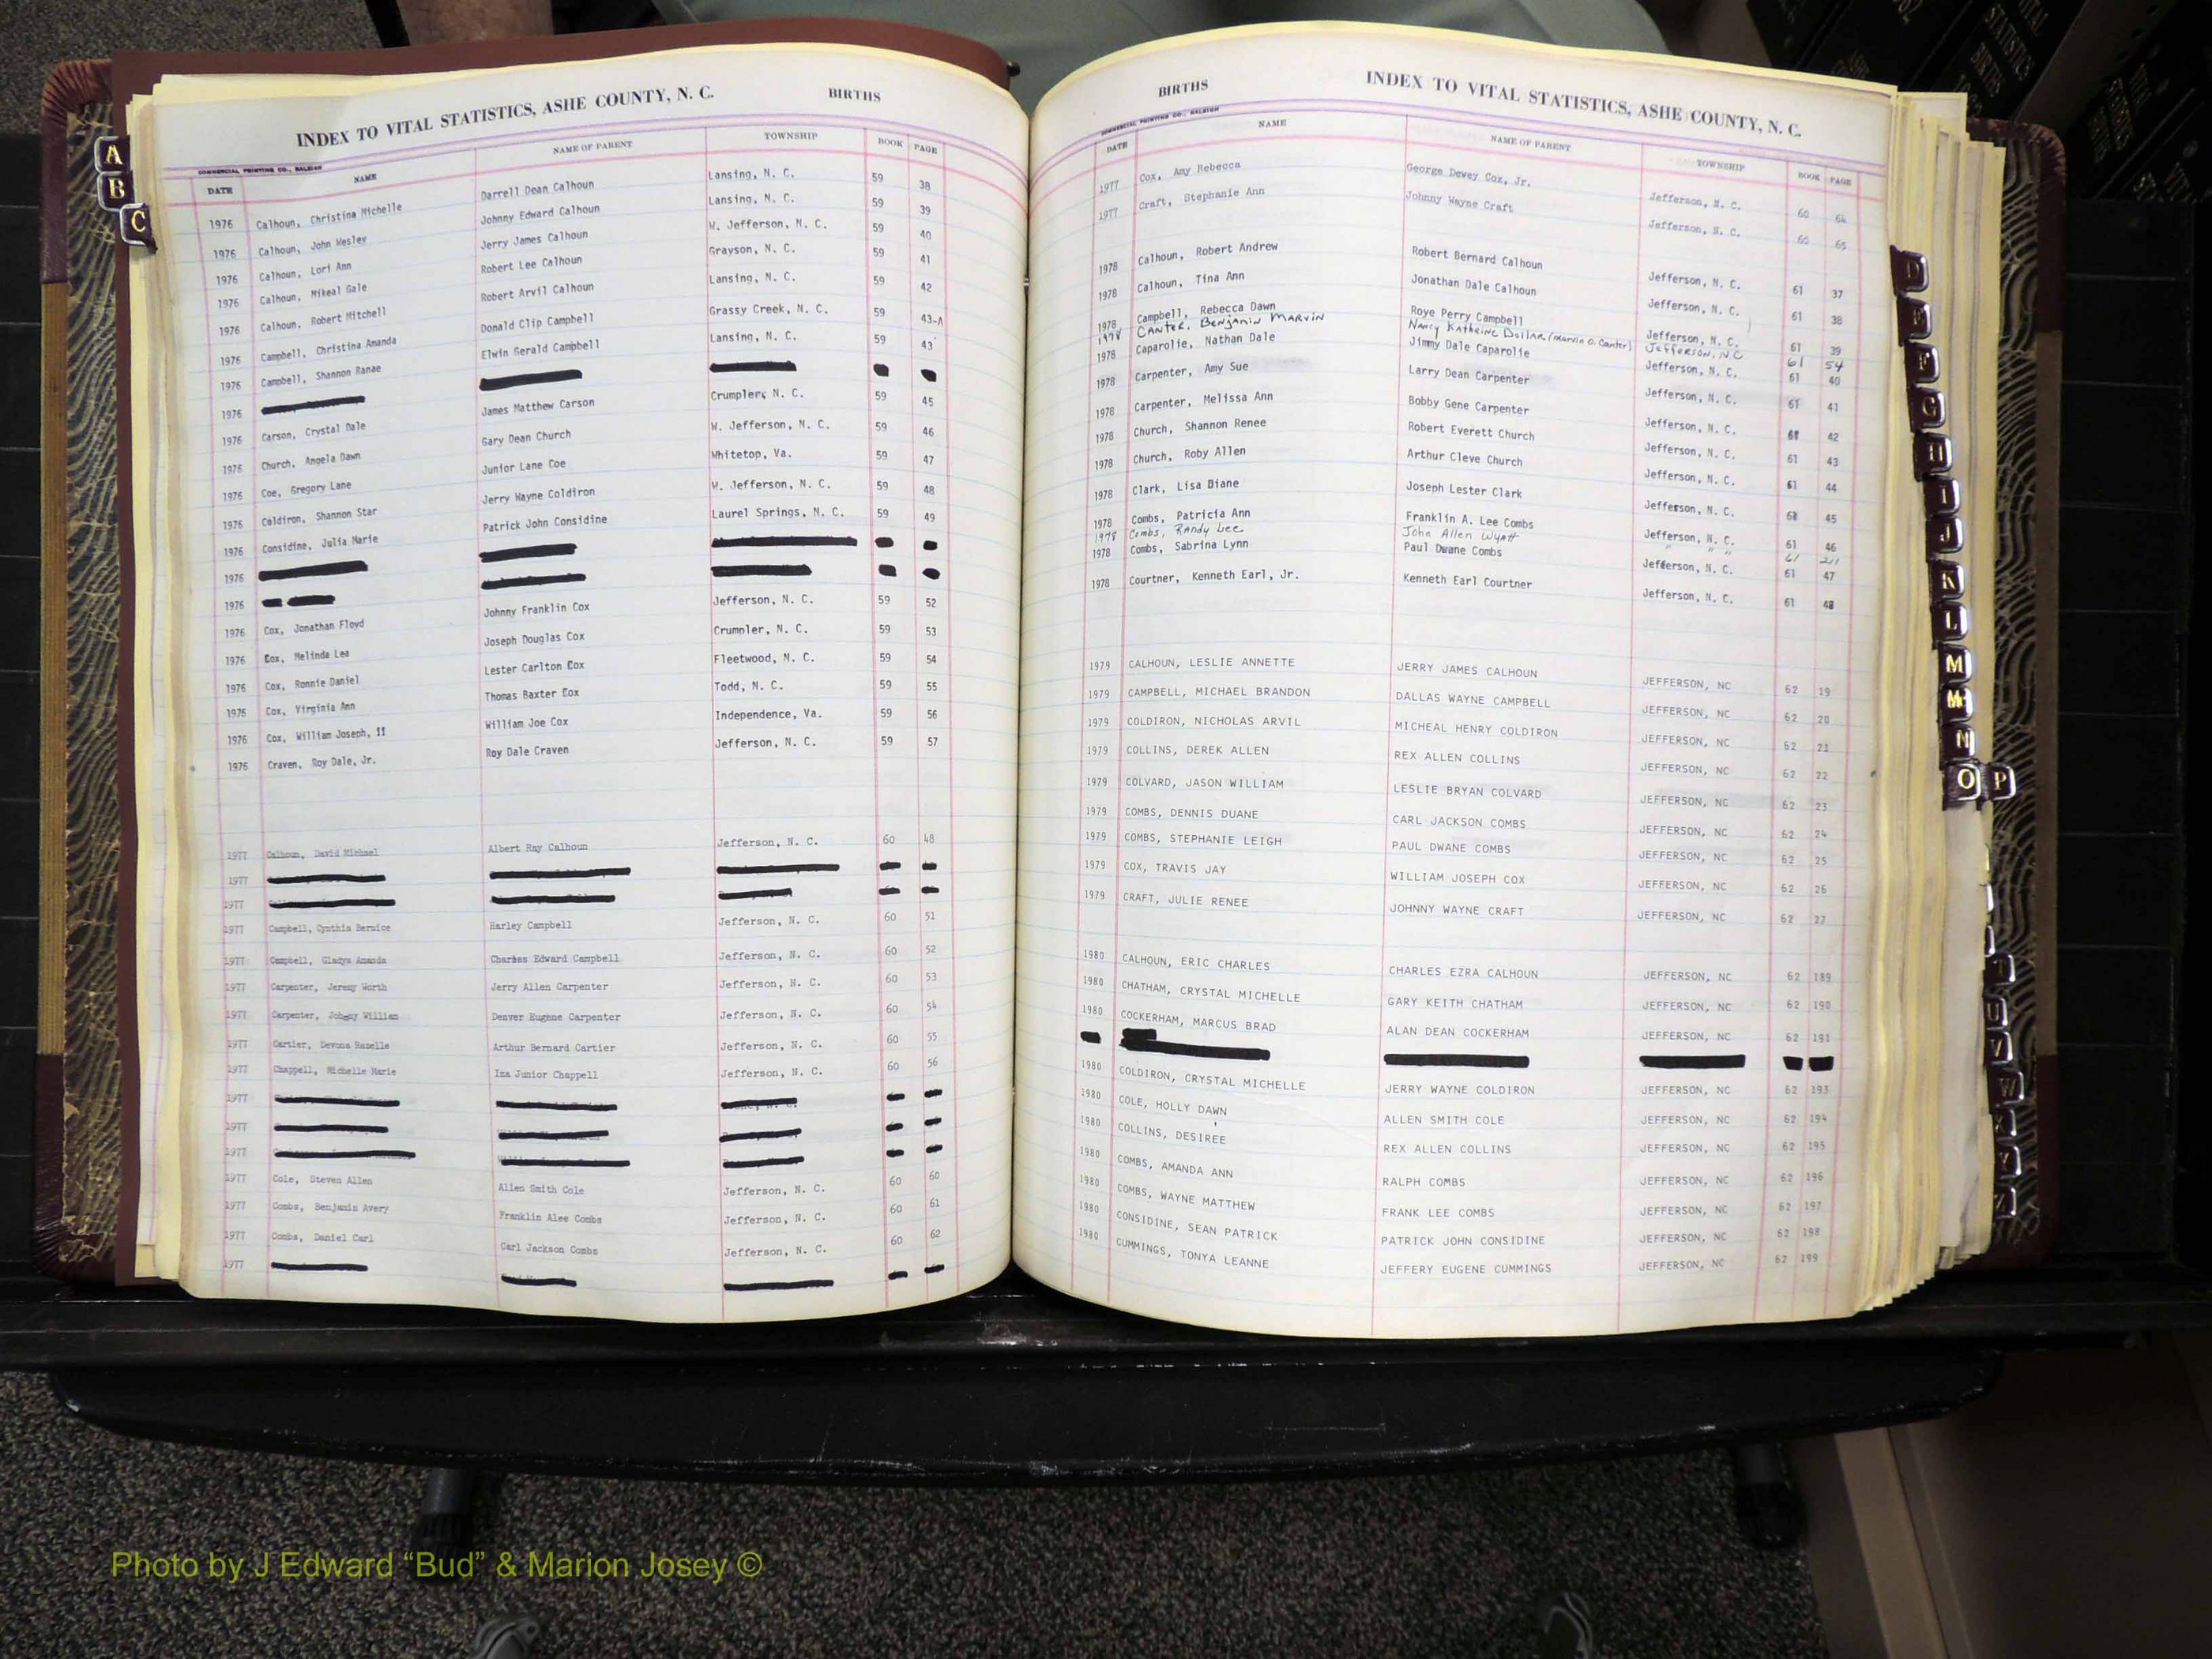 INDEX TO VITAL STATISTICS, ASHE COUNTY, N. C. BIRTHS
COMMERCIAL PRINTING CO., RALEIGH
DATE NAME NAME OF PARENT TOWNSHIP BOOK PAGE
1976 Calhoun, Christina Michelle Darrell Dean Calhoun Lansing, N. C. 59 38
1976 Calhoun, John Wesley Johnny Edward Calhoun Lansing, N. C. 59 39
1976 Calhoun, Lori Ann Jerry James Calhoun W. Jefferson, N. C. 59 40
1976 Calhoun, Mikeal Gale Robert Lee Calhoun Grayson, N. C. 59 41
1976 Calhoun, Robert Mitchell Robert Arvil Calhoun Lansing, N. C. 59 42
1976 Campbell, Christina Amanda Donald Clip Campbell Grassy Creek, N. C. 59 43-A
1976 Campbell, Shannon Ranae Elwin Gerald Campbell Lansing, N. C. 59 43
1976
1976 Carson, Crystal Dale James Matthew Carson Crumpler, N. C. 59 45
1976 Church, Angela Dawn Gary Dean Church W. Jefferson, N. C. 59 46
1976 Coe, Gregory Lane Junior Lane Coe Whitetop, Va. 59 47
1976 Coldiron, Shannon Star Jerry Wayne Coldiron W. Jefferson, N. C. 59 48
1976 Considine, Julia Marie Patrick John Considine Laurel Springs, N. C. 59 49
1976
1976
1976 Cox, Jonathan Floyd Johnny Franklin Cox Jefferson, N. C. 59 52
1976 Cox, Melinda Lea Joseph Douglas Cox Crumpler, N. C. 59 53
1976 Cox, Ronnie Daniel Lester Carlton Cox Fleetwood, N. C. 59 54
1976 Cox, Virginia Ann Thomas Baxter Cox Todd, N. C. 59 55
1976 Cox, William Joseph, II William Joe Cox Independence, Va. 59 56
1976 Craven, Roy Dale, Jr. Roy Dale Craven Jefferson, N. C. 59 57
1977 Calhoun, David Michael Albert Ray Calhoun Jefferson, N. C. 60 48
1977
1977
1977 Campbell, Cynthia Bernice Harley Campbell Jefferson, N. C. 60 51
1977 Campbell, Gladys Amanda Charles Edward Campbell Jefferson, N. C. 60 52
1977 Carpenter, Jeremy Worth Jerry Allen Carpenter Jefferson, N. C. 60 53
1977 Carpenter, Johnny William Denver Eugene Carpenter Jefferson, N. C. 60 54
1977 Cartier, Devona Razelle Arthur Bernard Cartier Jefferson, N. C. 60 55
1977 Chappell, Michelle Marie Iza Junior Chappell Jefferson, N. C. 60 56
1977
1977
1977
1977 Cole, Steven Allen Allen Smith Cole Jefferson, N. C. 60 60
1977 Combs, Benjamin Avery Franklin Alee Combs Jefferson, N. C. 60 61
1977 Combs, Daniel Carl Carl Jackson Combs Jefferson, N. C. 60 62
1977
BIRTHS INDEX TO VITAL STATISTICS, ASHE COUNTY, N. C.
COMMERCIAL PRINTING CO., RALEIGH
DATE NAME NAME OF PARENT TOWNSHIP BOOK PAGE
1977 Cox, Amy Rebecca George Dewey Cox, Jr. Jefferson, N. C. 60 64
1977 Craft, Stephanie Ann Johnny Wayne Craft Jefferson, N. C. 60 65
1978 Calhoun, Robert Andrew Robert Bernard Calhoun Jefferson, N. C. 61 37
1978 Calhoun, Tina Ann Jonathan Dale Calhoun Jefferson, N. C. 61 38
1978 Campbell, Rebecca Dawn Roye Perry Campbell Jefferson, N. C. 61 39
1978 Canter, Benjamin Marvin Nancy Kathrine Dollar (Marvin O. Canter) Jefferson, NC 61 54
1978 Caparolie, Nathan Dale Jimmy Dale Caparolie Jefferson, N. C. 61 40
1978 Carpenter, Amy Sue Larry Dean Carpenter Jefferson, N. C. 61 41
1978 Carpenter, Melissa Ann Bobby Gene Carpenter Jefferson, N. C. 61 42
1978 Church, Shannon Renee Robert Everett Church Jefferson, N. C. 61 43
1978 Church, Roby Allen Arthur Cleve Church Jefferson, N. C. 61 44
1978 Clark, Lisa Diane Joseph Lester Clark Jefferson, N. C. 61 45
1978 Combs, Patricia Ann Franklin A. Lee Combs Jefferson, N. C. 61 46
1978 Combs, Randy Lee John Allen Wyatt " " " 61 211
1978 Combs, Sabrina Lynn Paul Dwane Combs Jefferson, N. C. 61 47
1978 Courtner, Kenneth Earl, Jr. Kenneth Earl Courtner Jefferson, N. C. 61 48
1979 CALHOUN, LESLIE ANNETTE JERRY JAMES CALHOUN JEFFERSON, NC 62 19
1979 CAMPBELL, MICHAEL BRANDON DALLAS WAYNE CAMPBELL JEFFERSON, NC 62 20
1979 COLDIRON, NICHOLAS ARVIL MICHEAL HENRY COLDIRON JEFFERSON, NC 62 21
1979 COLLINS, DEREK ALLEN REX ALLEN COLLINS JEFFERSON, NC 62 22
1979 COLVARD, JASON WILLIAM LESLIE BRYAN COLVARD JEFFERSON, NC 62 23
1979 COMBS, DENNIS DUANE CARL JACKSON COMBS JEFFERSON, NC 62 24
1979 COMBS, STEPHANIE LEIGH PAUL DWANE COMBS JEFFERSON, NC 62 25
1979 COX, TRAVIS JAY WILLIAM JOSEPH COX JEFFERSON, NC 62 26
1979 CRAFT, JULIE RENEE JOHNNY WAYNE CRAFT JEFFERSON, NC 62 27
1980 CALHOUN, ERIC CHARLES CHARLES EZRA CALHOUN JEFFERSON, NC 62 189
1980 CHATHAM, CRYSTAL MICHELLE GARY KEITH CHATHAM JEFFERSON, NC 62 190
1980 COCKERHAM, MARCUS BRAD ALAN DEAN COCKERHAM JEFFERSON, NC 62 191
1980 COLDIRON, CRYSTAL MICHELLE JERRY WAYNE COLDIRON JEFFERSON, NC 62 193
1980 COLE, HOLLY DAWN ALLEN SMITH COLE JEFFERSON, NC 62 194
1980 COLLINS, DESIREE REX ALLEN COLLINS JEFFERSON, NC 62 195
1980 COMBS, AMANDA ANN RALPH COMBS JEFFERSON, NC 62 196
1980 COMBS, WAYNE MATTHEW FRANK LEE COMBS JEFFERSON, NC 62 197
1980 CONSIDINE, SEAN PATRICK PATRICK JOHN CONSIDINE JEFFERSON, NC 62 198
1980 CUMMINGS, TONYA LEANNE JEFFERY EUGENE CUMMINGS JEFFERSON, NC 62 199
A
B
C
D
E
F
G
H
I
J
K
L
M
Mc
N
O P
T
V
W
Photo by J Edward “Bud” & Marion Josey ©